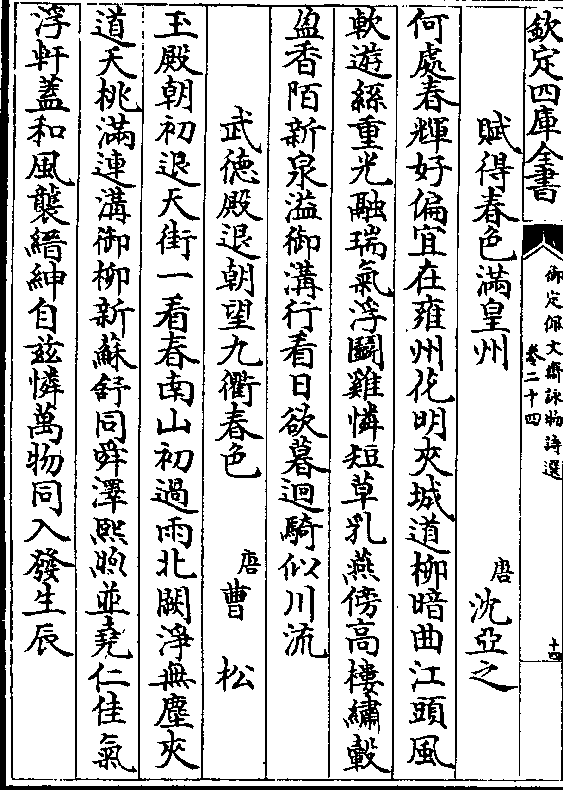 欽定四庫全書
御定佩文齋詠物詩選
卷二十四
十四
賦得春色滿皇州 唐 沈亞之
何處春輝好偏宜在雍州花明夾城道柳暗曲江頭風
軟遊絲重光融瑞氣浮鬭雞憐短草乳燕傍高樓繡轂
盈香陌新泉溢御溝行看日欲暮迴騎似川流
武徳殿退朝望九衢春色 唐 曹松
玉殿朝初退天街一看春南山初過雨北闕淨無塵夾
道夭桃滿連溝御柳新蘇舒同舜澤熙煦並堯仁佳氣
浮軒蓋和風襲縉紳自兹憐萬物同入發生辰